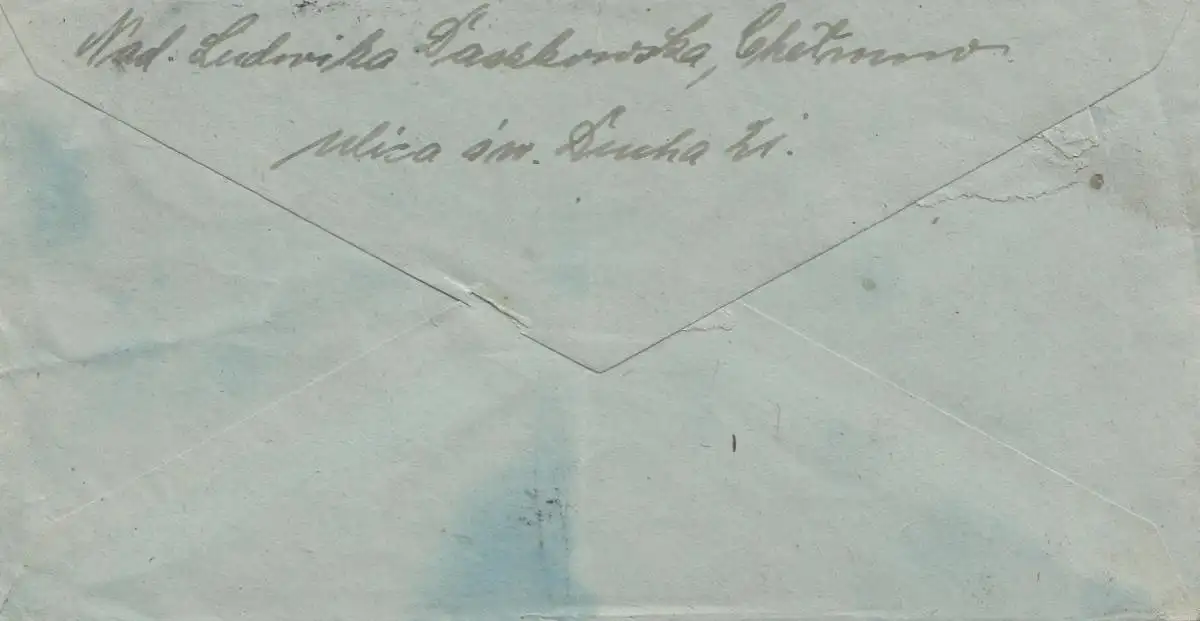 Nad. Ludwika Daszkowska, Chełmno.
ulica św. Ducha 21.